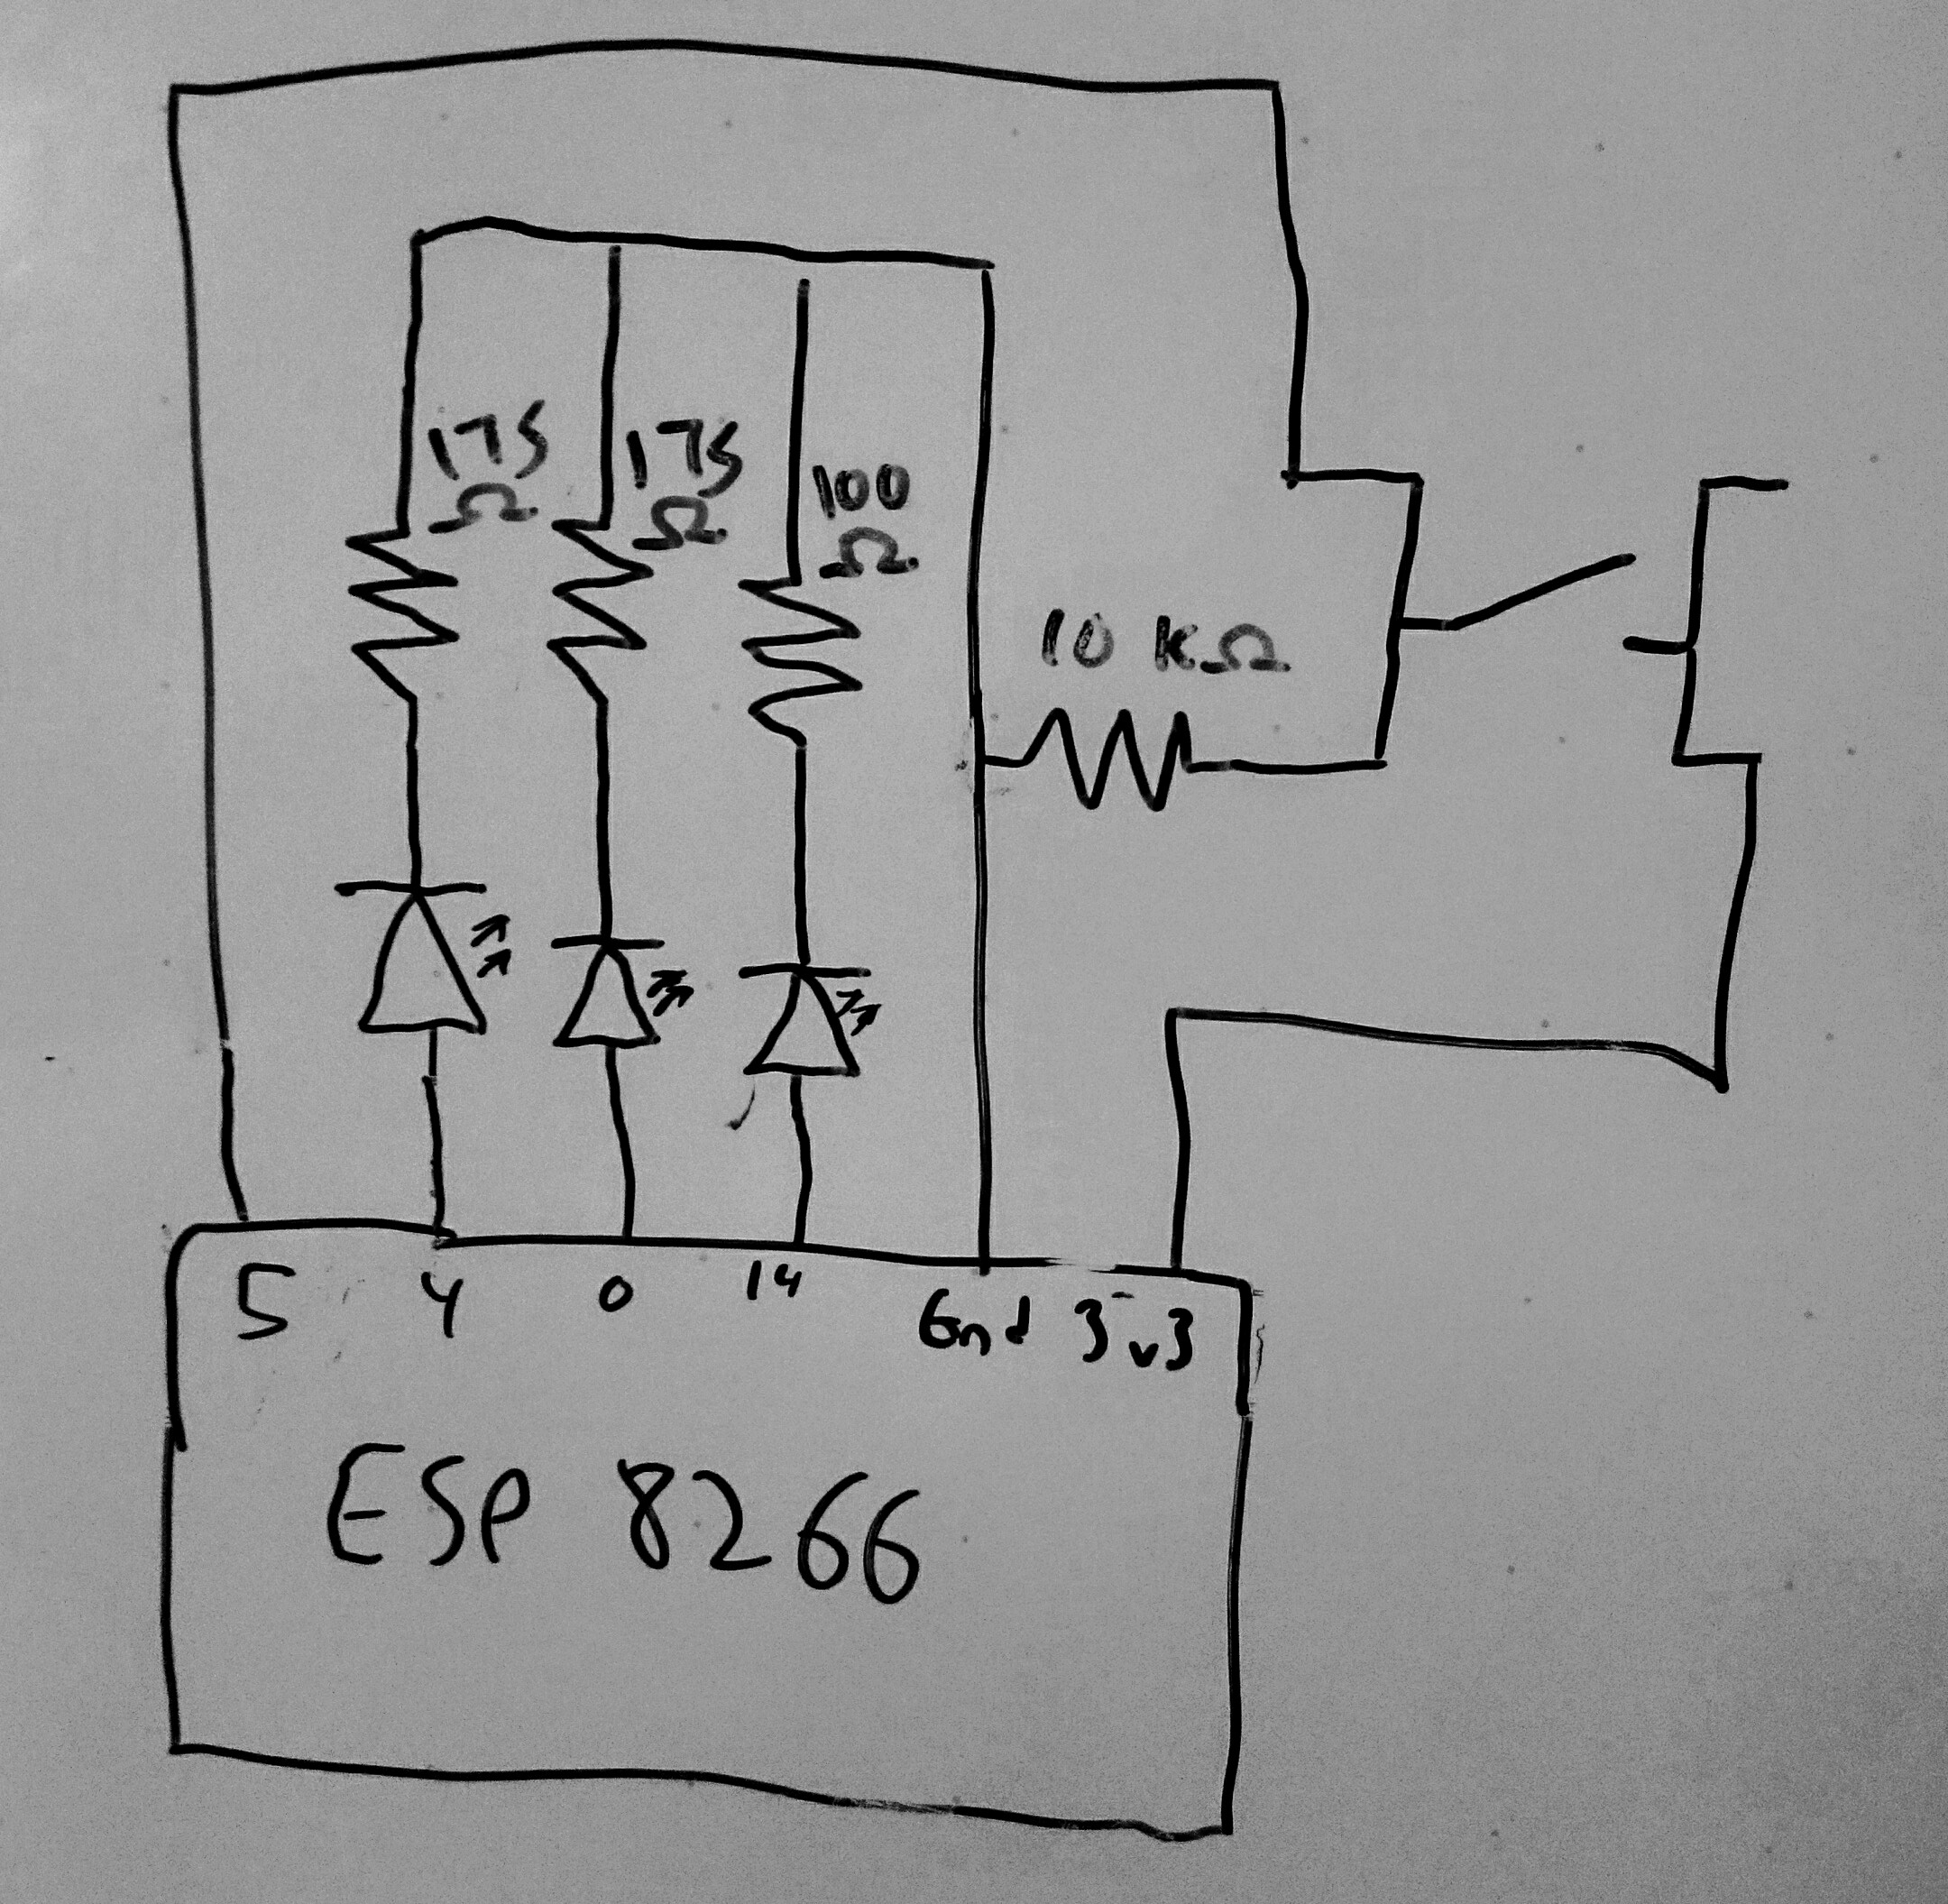 175
Ω
175
Ω
100
Ω
10 KΩ
5 4 0 14 Gnd 3v3
ESP 8266